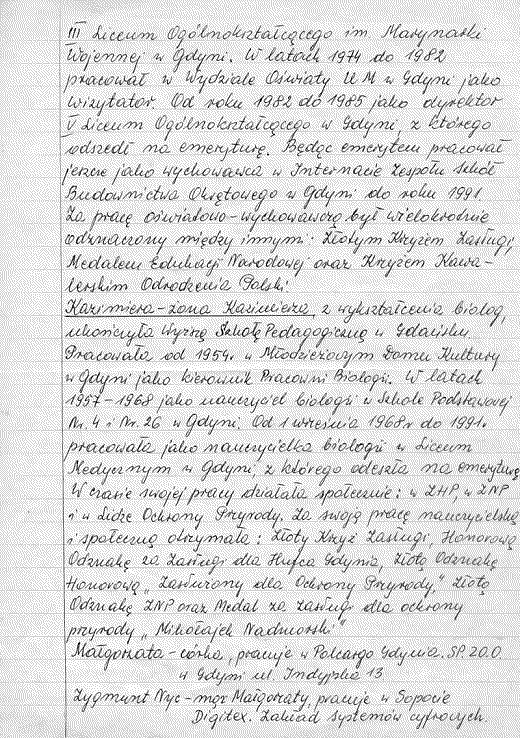 III Liceum Ogólnokształcącego im. Marynarki
Wojennej w Gdyni. W latach 1974 do 1982
pracował w Wydziale Oświaty UM w Gdyni jako
wizytator. Od roku 1982 do 1985 jako dyrektor
V Liceum Ogólnokształcącego w Gdyni, z którego
odszedł na emeryturę. Będąc emerytem pracował
jeszcze jako wychowawca w Internacie Zespołu Szkół
Budownictwa Okrętowego w Gdyni do roku 1991.
Za pracę oświatowo-wychowawczą był wielokrotnie
odznaczony między innymi: Złotym Krzyżem Zasługi,
Medalem Edukacji Narodowej oraz Krzyżem Kawa-
lerskim Odrodzenia Polski.
Kazimiera - żona Kazimierza, z wykształcenia biolog,
ukończyła Wyższą Szkołę Pedagogiczną w Gdańsku.
Pracowała od 1954r. w Młodzieżowym Domu Kultury
w Gdyni jako kierownik Pracowni Biologii. W latach
1957-1968 jako nauczyciel biologii w Szkole Podstawowej
Nr. 4 i Nr. 26 w Gdyni. Od 1 września 1968r do 1991r.
pracowała jako nauczycielka biologii w Liceum
Medycznym w Gdyni, z którego odeszła na emeryturę
W czasie swojej pracy działała społecznie: w ZHP, w ZNP
i w Lidze Ochrony Przyrody. Za swoją pracę nauczycielską
i społeczną otrzymała: Złoty Krzyż Zasługi, Honorową
Odznakę za Zasługi dla Hufca Gdynia, Złotą Odznakę
Honorową „Zasłużony dla Ochrony Przyrody," Złotą
Odznakę ZNP oraz Medal za zasługi dla ochrony
przyrody „Mikołajek Nadmorski"
Małgorzata - córka, pracuje w Polcargo Gdynia. SP. Z O.O
w Gdyni ul. Indyjska 13
Zygmunt Nyc - mąż Małgorzaty, pracuje w Sopocie
Digitex. Zakład systemów cyfrowych.